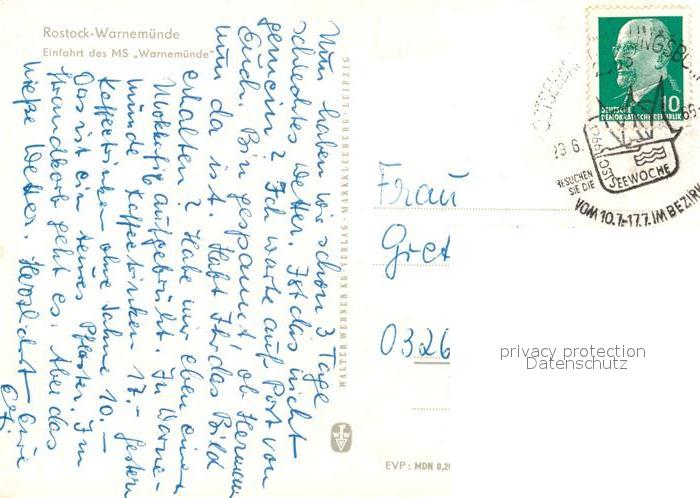 Rostock-Warnemünde
Einfahrt des MS „Warnemünde"
Nun haben wir schon 3 Tage
schlechtes Wetter. Ist das nicht
gemein? Ich warte auf Post von
Euch. Bin gespannt, ob Hermann
nun da ist. Habt Ihr das Bild
erhalten? Habe mir eben einen
Mokkafix aufgebrüht. In Warne-
münde Kaffeetrinken 17.- gestern
Kaffeetrinken ohne Sahne 10.-
Das ist ein teures Pflaster. Im
Strandkorb geht es. Aber das
Wetter. Herzlichst Eure
WALTER WERNER KG VERLAG · MARKKLEEBERG-LEIPZIG
EVP: MDN 0,20
DEUTSCHE
DEMOKRATISCHE REPUBLIK
10
BESUCHEN
SIE DIE
OSTSEEWOCHE
1966
VOM 10.7.-17.7. IM BEZIR
Frau
Gret
0326
privacy protection
Datenschutz